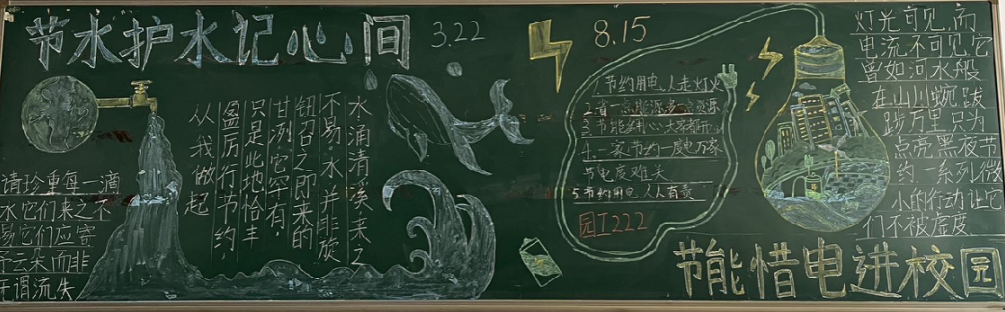 节水护水记心间
3.22
请珍重每一滴
水它们来之不
易它们应寄
予云朵而非
无谓流失
水涌清溪来之
不易水并非旋
钮召之即来的
甘洌它罕有
只是此地恰丰
盈厉行节约
从我做起
8.15
1.节约用电,人走灯火
3.节能
4.一家节约一度电万家
节电度难关
5.节约用电,人人有责
园T222
灯光可见,而
电流不可见它
曾如河水般
在山川蜿
万里只为
点亮黑夜节
约一系列微
小的行动让它
们不被虚度
节能惜电进校园